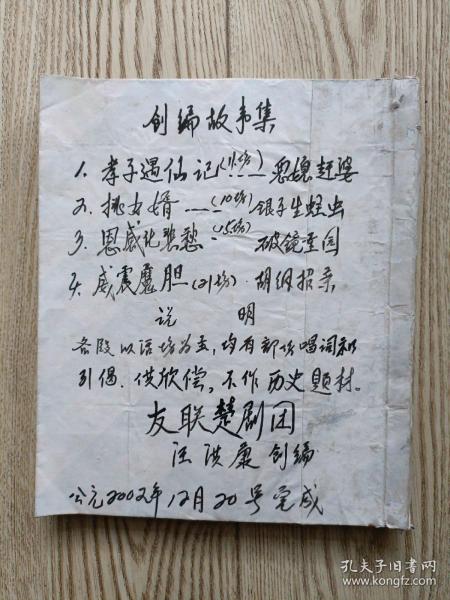 创编故事集
1. 孝子遇仙记(11场)---恶媳赶婆
2. 挑女婿---(10场)银子生蛀虫
3. 恩感化悲愁(15场)破镜重圆
4. 威震魔胆(21场)·胡纲招亲
说 明
各段以活场为主，均有部场唱词和
引偈.供欣偿，不作历史题材。
友联楚剧团
汪洪廉创编
公元2002年12月20号完成
孔夫子旧书网
www.kongfz.com